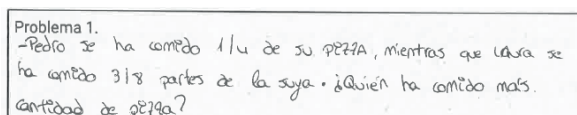 Problema 1.
-Pedro se ha comido 1/4 de su pizza, mientras que Laura se
ha comido 3/8 partes de la suya. ¿Quién ha comido más
cantidad de pizza?